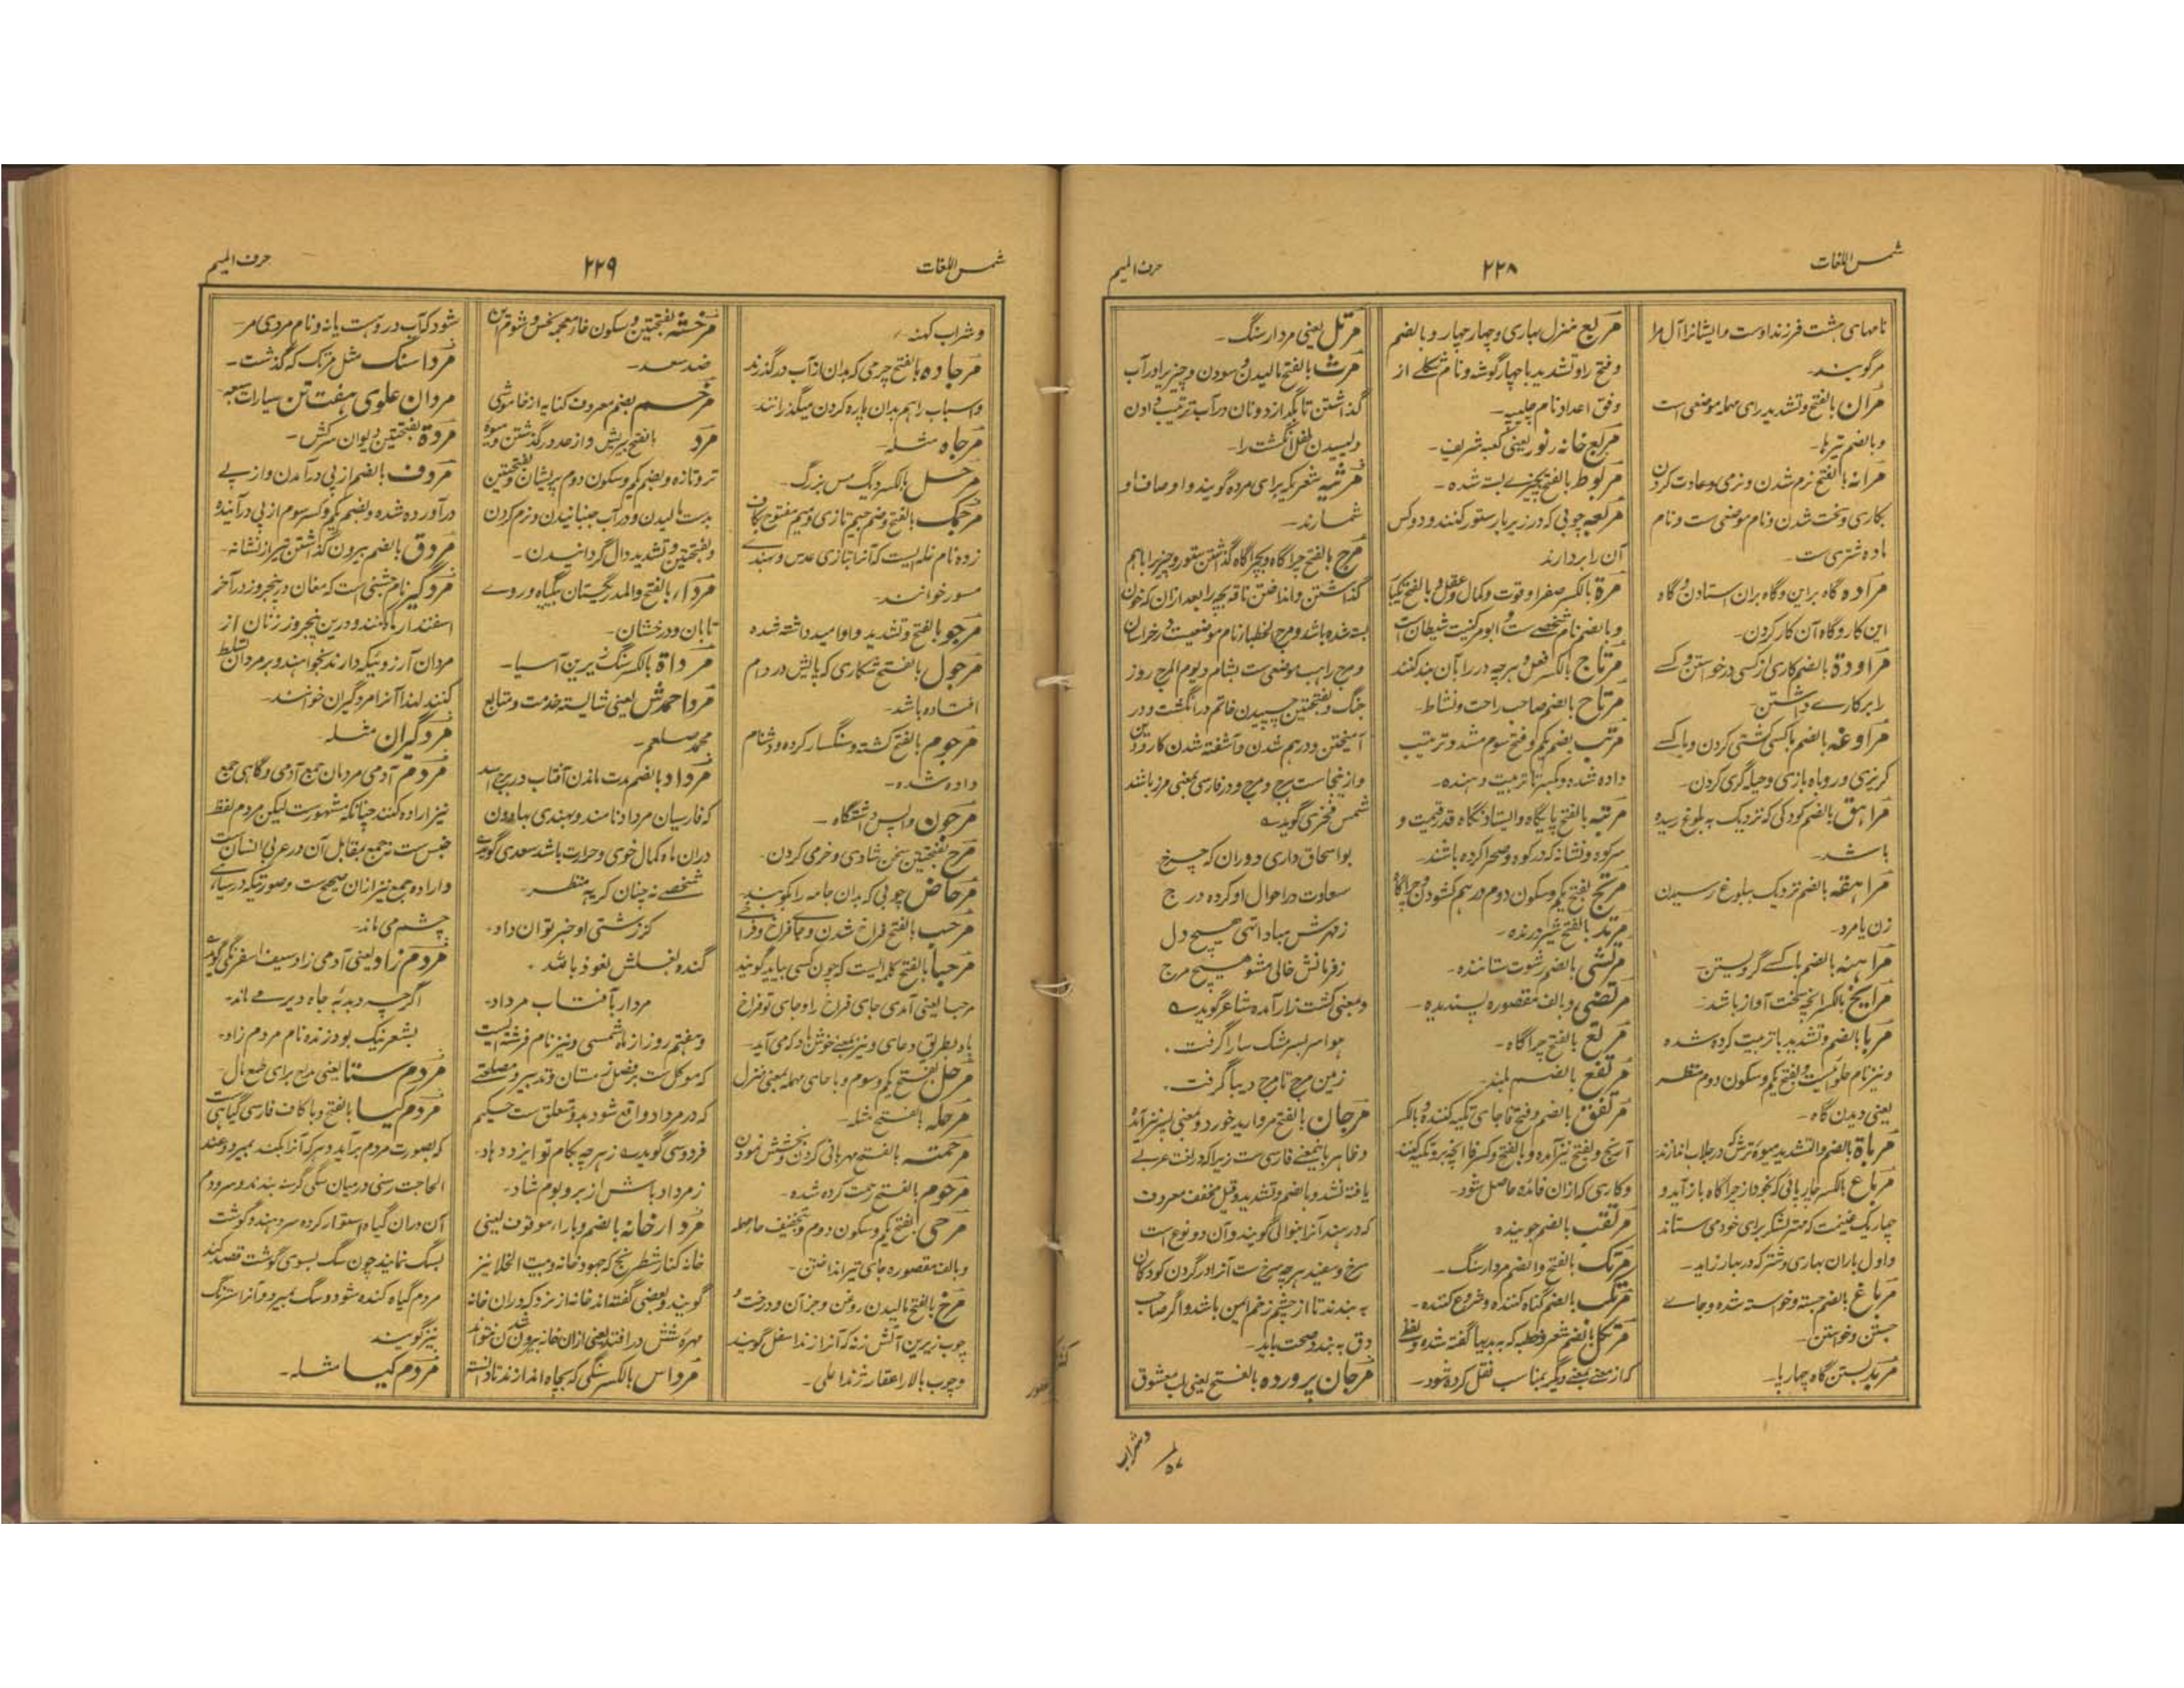 شمس اللغات
۲۲۸
حرف المیم
نامهای هشت فرزند اوست و ایشانرا آل مرا
مرگویند۔
مران بالفتح و تشدید رای مهمله موضعی است
و بالضم تیرها۔
مرانه بالفتح نرم شدن و نرمی و عادت کردن
بکاری و سخت شدن و نام موضعی ست و نام
ماده شتری ست۔
مراده گاه براین و گاه بران استادن و گاه
این کار و گاه آن کار کردن۔
مراودة بالضم کاری از کسی درخواستن و کسے
را بر کارے داشتن۔
مراوغه بالضم با کسی کشتی کردن و با کسے
گریزی و روباه بازی و حیله گری کردن۔
مراهق بالضم کودکی که نزدیک به بلوغ رسیده
باشد۔
مراهقه بالضم نزدیک ببلوغ رسیدن
زن یا مرد۔
مراهنه بالضم با کسے گرو بستن۔
مرایخ بالکسر آنچه سخت آواز باشد۔
مربا بالضم و تشدید با تربیت کرده شده
و نیز نام حلوائیست و بفتح یکم و سکون دوم منظر
یعنی دیدن گاه۔
مرباة بالضم و التشدید میوهٔ ترش که در جلاب اندازند
مرباع بالکسر چارپائی که بخود از چراگاه باز آید و
چهاریک غنیمت که مهتر لشکر برای خود می ستاند
و اول باران بهاری و شتر که در بهار زاید۔
مرباغ بالضم جسته و خواسته شده و جاے
جستن و خواستن۔
مربد بستن گاه چهارپا۔
مربع منزل بهاری و چهار چهار و بالضم
و فتح را و تشدید با چهار گوشه و نام شکلے از
وفق اعداد نام جلیبیه۔
مربع خانه نور یعنی کعبه شریف۔
مربوط بالفتح بچیزے بسته شده۔
مربعه چوبی که در زیر بار ستور کنند و دو کس
آن را بردارند
مرة بالکسر صفرا و قوت و کمال عقل و بالفتح یکبار
و بالضم نام شخصے ست و ابو مره کنیت شیطان است
مرتاج بالکسر قفل و هرچه در را بآن بند کنند
مرتاح بالضم صاحب راحت و نشاط۔
مرتب بضم یکم و فتح سوم مشدد ترتیب
داده شده و بکسر تا تربیت دهنده۔
مرتبه بالفتح پایگاه و الیستادنگاه قدر قیمت و
سر کوه و نشانه که در کوه و صحرا کرده باشند۔
مرتج بفتح یکم و سکون دوم در هم کشودن و چراگاه
مرتد بالفتح شیر درنده۔
مرتشی بالضم رشوت ستاننده۔
مرتضی و بالف مقصوره پسندیده۔
مرتع بالفتح چراگاه۔
مرتفع بالضم بلند۔
مرتفق بالضم و فتح فا جای تکیه کننده و بالکسر
آرنج و بفتح نیز آمده و بالفتح و کسر فا آنچه بر و تکیه کنند
و کاری که ازان فائده حاصل شود۔
مرتقب بالضم جوینده
مرتک بالفتح و الضم مردار سنگ۔
مرتکب بالضم گناه کننده و شروع کننده۔
مرتجل بالضم شعر و خطبه که به بدیها گفته شده و لفظے
که از معنے بمعنے دیگر بمناسب نقل کرده شود۔
مرتل یعنی مردار سنگ۔
مرث بالفتح مالیدن و سودن و چیزیرا در آب
گذاشتن تا بگدازد و نان در آب ترتیب دادن
و لیسیدن طفل انگشت را۔
مرثیه شعریکه برای مرده گویند و اوصاف او
شمارند۔
مرج بالفتح چراگاه و بچراگاه گذاشتن ستور و چیز را باهم
گذاشتن و انداختن ناقه بچه را بعد ازان که خون
بسته شده باشد و مرج الخطبا نام موضعیست در خراسان
و مرج راهب موضعی ست بشام و یوم المرج روز
جنگ و بفتحتین جنبیدن خاتم در انگشت و در
آمیختن و در هم شدن و آشفته شدن کار و دین
و از ینجاست هرج و مرج و در فارسی بمعنی مرز باشد
شمس فخری گوید ے
بواسحاق داری دوران که چرخ
سعادت در احوال او کرده درج
ز قهرش مباد اتهی هیچ دل
ز فرمانش خالی مشو هیچ مرج
و بمعنی کشت زار آمده شاعر گوید ے
هوا سر بسر شک سارا گرفت
زمین مرج تا مرج دیبا گرفت
مرجان بالفتح مروارید خورد و بمعنی بسد نیز آمده
و ظاهر باینمعنے فارسی ست زیرا که در لغت عربے
یافته نشد و بالضم و تشدید و قیل مخفف معروف
که در هند آنرا بنوالی گویند و آن دو نوع است
سرخ و سفید هر چه سرخ ست آنرا در گردن کودکان
به بندند تا از چشم زخم ایمن باشد و اگر صاحب
دق به بندد صحت یابد۔
مرجان پرورده بالفتح یعنی لب معشوق
و شراب
شمس اللغات
۲۲۹
حرف المیم
و شراب کهنه
مرجاده بالفتح چرمی که بدان از آب درگذرند
و اسباب را هم بدان پاره کردن میگذرانند۔
مرجاه مثله۔
مرجل بالکسر دیگ مس بزرگ۔
مرجمک بالفتح و ضم جیم تازی و میم مفتوح بکاف
زده نام غله ایست که آنرا بتازی عدس و بهندے
مسور خوانند۔
مرجو بالفتح و تشدید واو امید داشته شده
مرجول بالفتح شکاری که پایش در دام
افتاده باشد۔
مرجوم بالفتح کشته و سنگسار کرده و دشنام
داده شده۔
مرجون واپس داشتگاه۔
مرح بفتحتین سخن شادی و خرمی کردن۔
مرحاض چوبی که بدان جامه را بکوبند۔
مرحب بالفتح فراخ شدن و جا فراخ و فراخے
مرحبا بالفتح کلمه ایست که چون کسی بیاید گویند
مرحبا یعنی آمدی جای فراخ را و جای تو فراخ
باد بطریق دعای و نیز بمعنے خوش باد که می آید۔
مرحل بفتح یکم و سوم و با حای مهمله بمعنی منزل
مرحله بالفتح مثله۔
مرحمته بالفتح مهربانی کردن و بخشش نمودن
مرحوم بالفتح رحمت کرده شده۔
مرحی بفتح یکم و سکون دوم و بتخفیف حا مهمله
و بالف مقصوره جای تیر انداختن۔
مرخ بالفتح مالیدن روغن و جز آن و درخت و
چوب زیرین آتش زنه که آنرا زند اسفل گویند
و چوب بالا را عفار زند اعلی۔
مرخشه بفتحتین و سکون خاء معجمه نحس و شوم این
ضد سعد۔
مرخسم بضم معروف کنایه از خاموشی
مرد بالفتح بریش و از حد درگذشتن و میوه
تر و تازه و بضم یکم و سکون دوم پریشان و بفتحتین
بدست مالیدن و در آب جنبانیدن و نرم کردن
و بفتحتین و تشدید دال گردانیدن۔
مرداء بالفتح و المد ریگستان بیگیاه و روے
تابان و درخشان۔
مرداة بالکسر سنگ زیرین آسیا۔
مرداحمدش یعنی شایسته خدمت و متابع
محمد صلعم۔
مرداد بالضم مدت ماندن آفتاب در برج اسد
که فارسیان مردادنامند و بهندی بهادون
دران ماه کمال خوی و حرارت باشد سعدی گوید ے
شخصے نه چنان کریه منظر
کز زشتی او خبر توان داد
گنده بغلش نعوذ بالله
مردار بآفتاب مرداد
و هفتم روز از ماه شمسی و نیز نام فرشته ایست
که موکل ست بر فصل زمستان و تدبیر و مصلحتے
که در مرداد واقع شود بدو متعلق ست حکیم
فردوسی گوید ے ز هر چه بکام تو ایزد دهاد
ز مرداد باش از بر و بوم شاد۔
مردارخانه بالضم و با راء موقوف یعنی
خانه کنار شطرنج که جهودخانه و بیت الخلا نیز
گویند و بعضی گفته اند خانه از نرد که دران خانه
مهره شش در افتد یعنی ازان خانه بیرون شدن نتواند
مرداس بالکسر سنگی که بچاه اندازند تا دانسته
شود که آب دروست یا نه و نام مردی مر۔
مرداسنگ مثل مرتک که گذشت۔
مردان علوی هفت تن سیارات سبعه۔
مردة بفتحتین دیوان سرکش۔
مردوف بالضم از پی درآمدن و از پے
درآورده شده و بضم یکم و کسر سوم از پی درآینده
مردق بالضم بیرون گذاشتن تیر از نشانه۔
مردگیر نام جشنی است که مغان در پنجروز در آخر
اسفندارماه کنند و درین پنجروز زنان از
مردان آرزوئیکه دارند بخواهند و بر مردان تسلط
کنند لهذا آنرا مردگیران خوانند۔
مردگیران مثله۔
مردم آدمی مردمان جمع آدمی و گاهی جمع
نیز اراده کنند چنانکه مشهورست لیکن مردم لفظ
جنس ست نه جمع مقابل آن در عربی انسان ست
و اراده جمع نیز ازان صحیح ست و صورتیکه در سیاهے
چشم می ماند۔
مردم زاد یعنی آدمی زاد سیف اسفرنگی گوید ے
اگرچه دبدبهٔ جاه دیر مے ماند
بشعر نیک بود زنده نام مردم زاد۔
مردم ستا یعنی مدح برای طمع مال۔
مردم گیا بالفتح و با کاف فارسی گیاهی ست
که بصورت مردم برآید و هر که آنرا بکند بمیرد و عند
الحاجت رسنی در میان سگی گرسنه بندند و سر دوم
آن دران گیاه استوار کرده سر دهند و گوشت
بسگ نمایند چون سگ بسوی گوشت قصد کند
مردم گیاه کنده شود و سگ بمیرد و آنرا استرنگ
نیز گویند
مردم گیا مثله۔